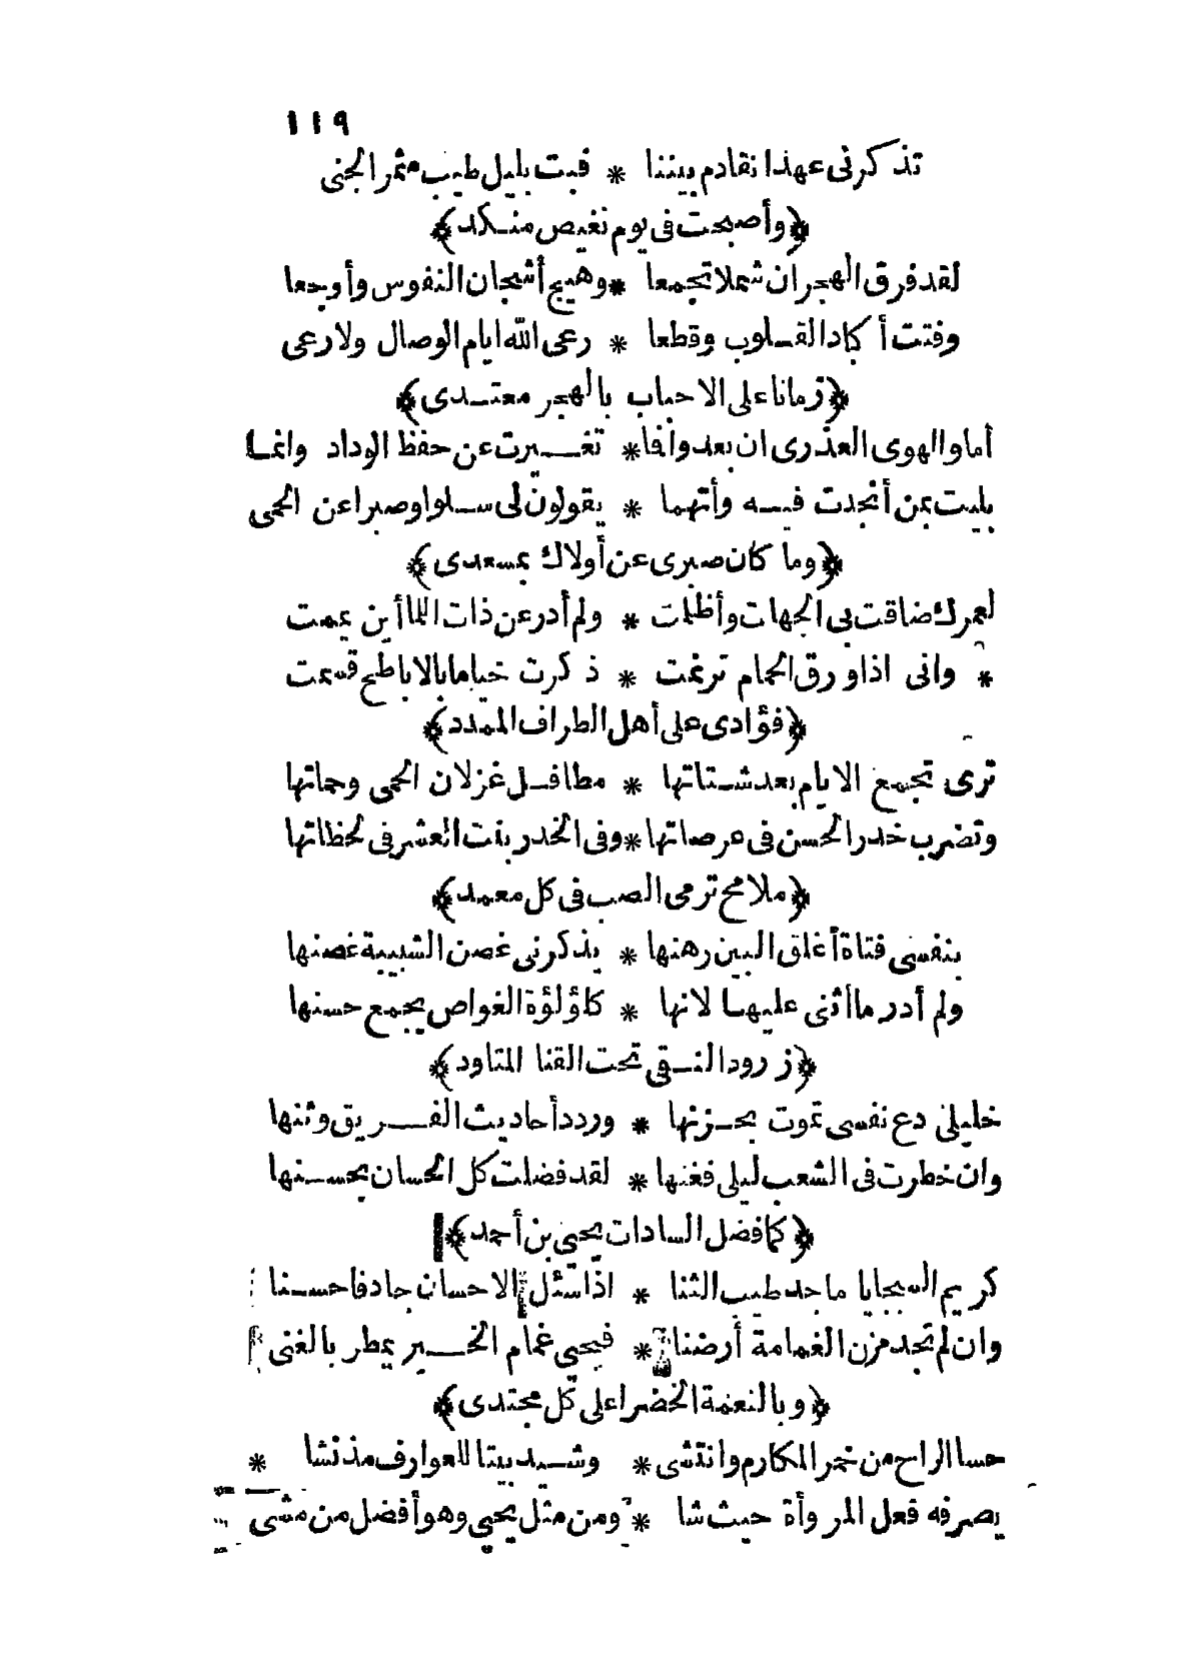 ١١٩
تذكرنى عهدا تقادم بيننا * فبت بليل طيب مثمر الجنى
﴿وأصبحت فى يوم نغيص منكد﴾
لقد فرق الهجران شملا تجمعا * وهيج أشجان النفوس وأوجعا
وفتت أكباد القلوب وقطعا * رعى الله ايام الوصال ولا رعى
﴿زمانا على الاحباب بالهجر معتدى﴾
أما والهوى العذرى ان بعدوا فما * تغيرت عن حفظ الوداد وانما
بليت بمن أنجدت فيه وأتهما * يقولون لى سلوا وصبرا عن الحمى
﴿وما كان صبرى عن أولاك بمسعدى﴾
لعمرك ضاقت بى الجهات وأظلمت * ولم أدر عن ذات اللما أين يممت
* وانى اذا ورق الحمام ترنمت * ذكرت خياما بالاباطح قسمت
﴿فؤادى على أهل الطراف الممدد﴾
ترى تجمع الايام بعد شتاتها * مطافل غزلان الحمى وحماتها
وتضرب خدر الحسن فى عرصاتها * وفى الخدر بنت العشر فى لحظاتها
﴿ملامح ترمى الصب فى كل معمد﴾
بنفسى فتاة أغلق البين رهنها * يذكرنى غصن الشبيبة غصنها
ولم أدر ما أثنى عليها لانها * كلؤلؤة الغواص يجمع حسنها
﴿زرود النقى تحت القنا المتاود﴾
خليلى دع نفسى تموت بحزنها * وردد أحاديث الفريق وثنها
وان خطرت فى الشعب ليلى فغنها * لقد فضلت كل الحسان بحسنها
﴿كما فضل السادات يحيى بن أحمد﴾
كريم السجايا ماجد طيب الثنا * اذا سئل الاحسان جاد فاحسنا
وان لم تجد مزن الغمامة أرضنا * فيحيى غمام الخير يمطر بالغنى
﴿وبالنعمة الخضرا على كل مجتدى﴾
حسا الراح من خمر المكارم وانتشى * وشيد بيتا للعوارف مذ نشا *
يصرفه فعل المروأة حيث شا * ومن مثل يحيى وهو أفضل من مشى